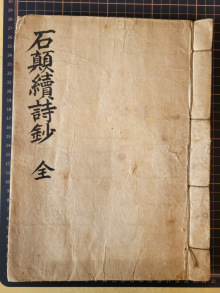 石顛續詩鈔 全